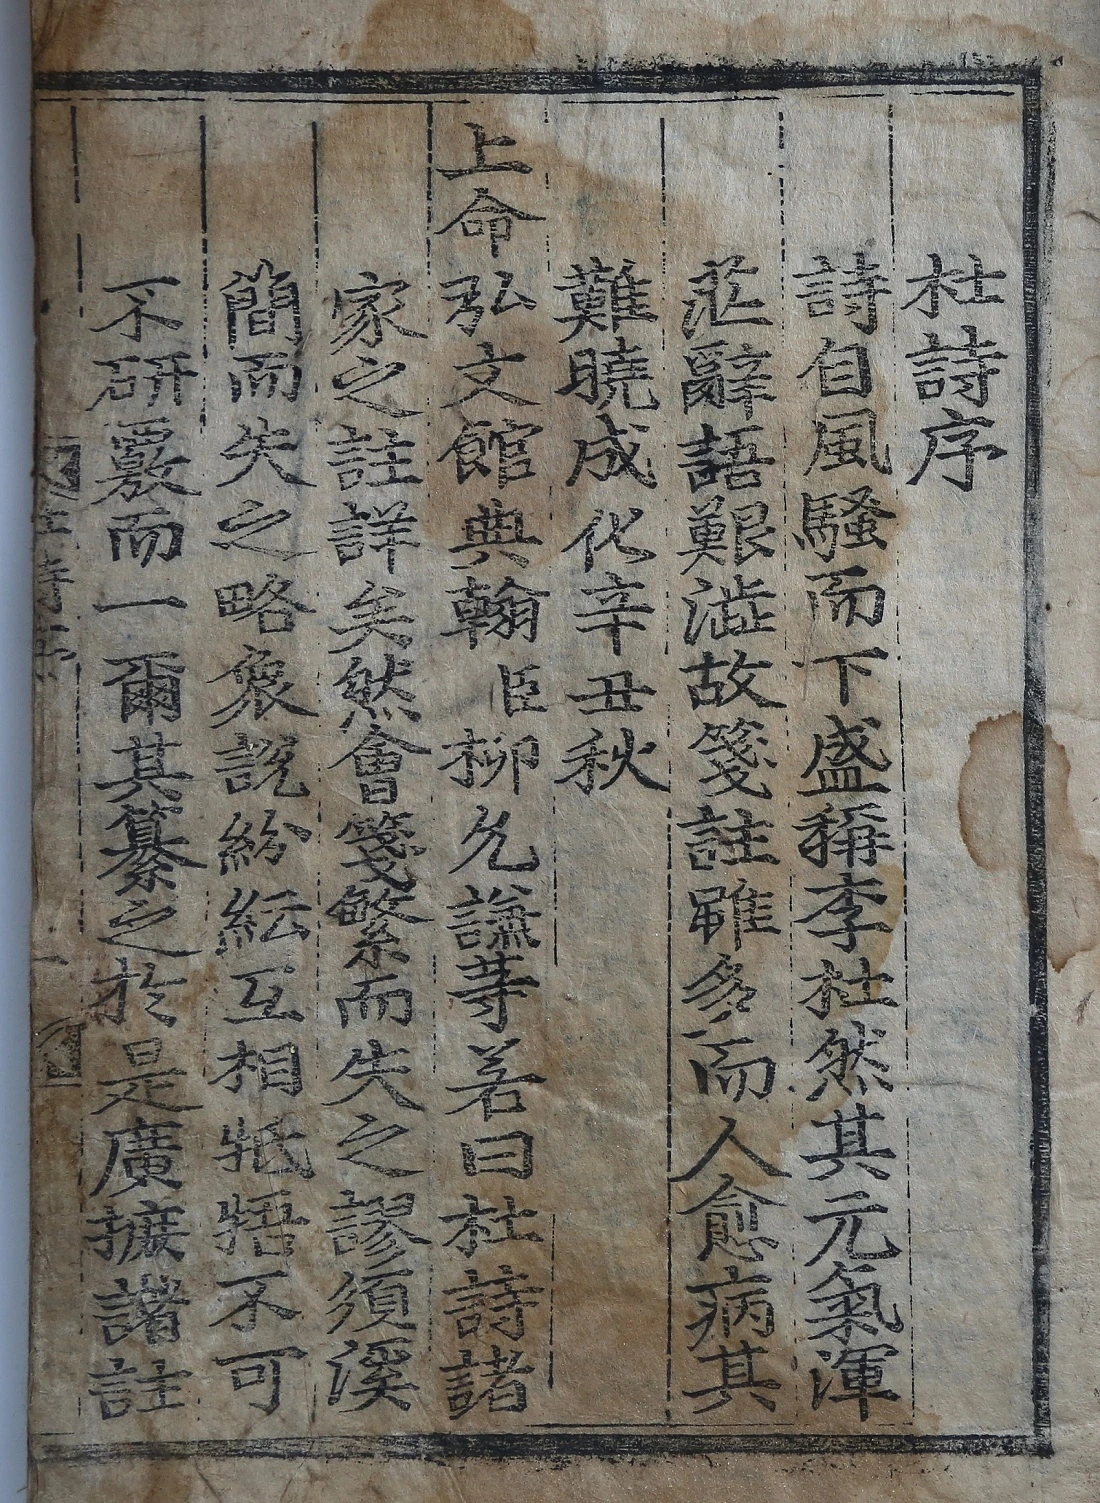 杜詩序
詩自風騷而下盛稱李杜然其元氣渾
茫辭語艱澁故箋註雖多而人愈病其
難曉成化辛丑秋
上命弘文館典翰臣柳允謙等若曰杜詩諸
家之註詳矣然會箋繁而失之謬須溪
簡而失之略衆說紛紜互相牴牾不可
不研覈而一爾其纂之於是廣摭諸註